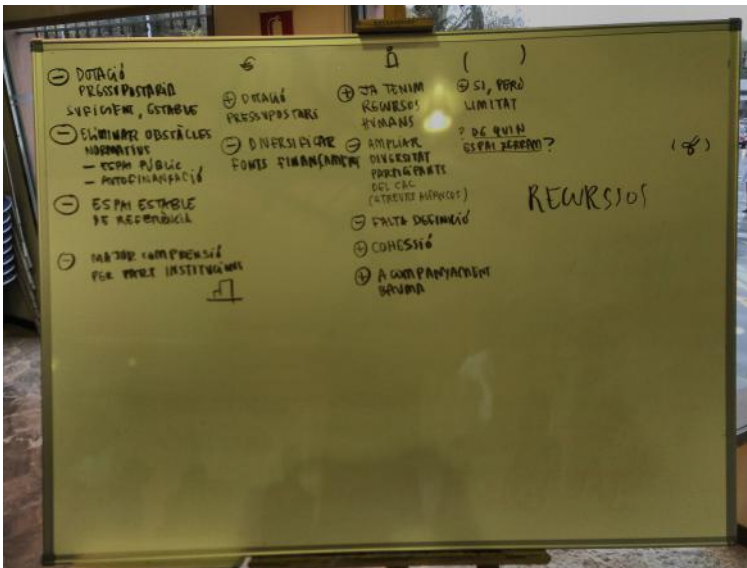 ⊖ DOTACIÓ
PRESSUPOSTÀRIA
SUFICIENT, ESTABLE
⊖ ELIMINAR OBSTÀCLES
NORMATIUS
– ESPAI PÚBLIC
– AUTOFINANÇACIÓ
⊖ ESPAI ESTABLE
DE REFERÈNCIA
⊖ MAJOR COMPRENSIÓ
PER PART INSTITUCIONS
€
⊕ DOTACIÓ
PRESSUPOSTARI
⊖ DIVERSIFICAR
FONTS FINANÇAMENT
⊕ JA TENIM
RECURSOS
HUMANS
⊖ AMPLIAR
DIVERSITAT
PARTICIPANTS
DEL CAC
⊖ FALTA DEFINICIÓ
⊕ COHESSIÓ
⊕ ACOMPANYAMENT
BAUMA
( )
⊕ SI, PERÒ
LIMITAT
? DE QUIN
ESPAI XERRAM?
RECURSOS